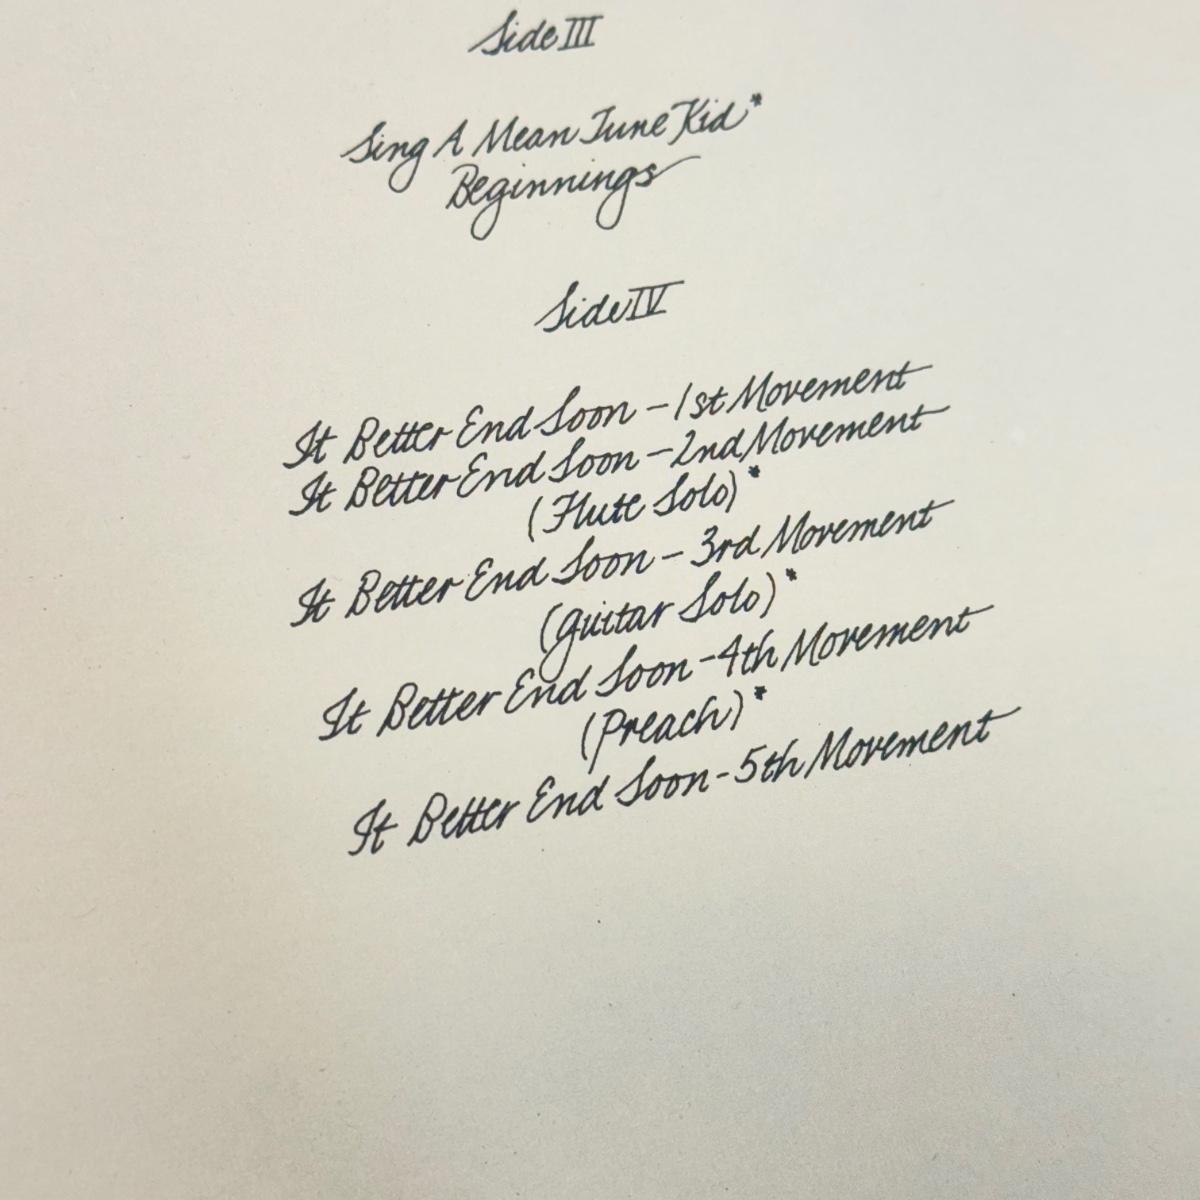 Side III
Sing A Mean Tune Kid*
Beginnings
Side IV
It Better End Soon - 1st Movement
It Better End Soon - 2nd Movement
(Flute Solo)*
It Better End Soon - 3rd Movement
(Guitar Solo)*
It Better End Soon - 4th Movement
(Preach)*
It Better End Soon - 5th Movement